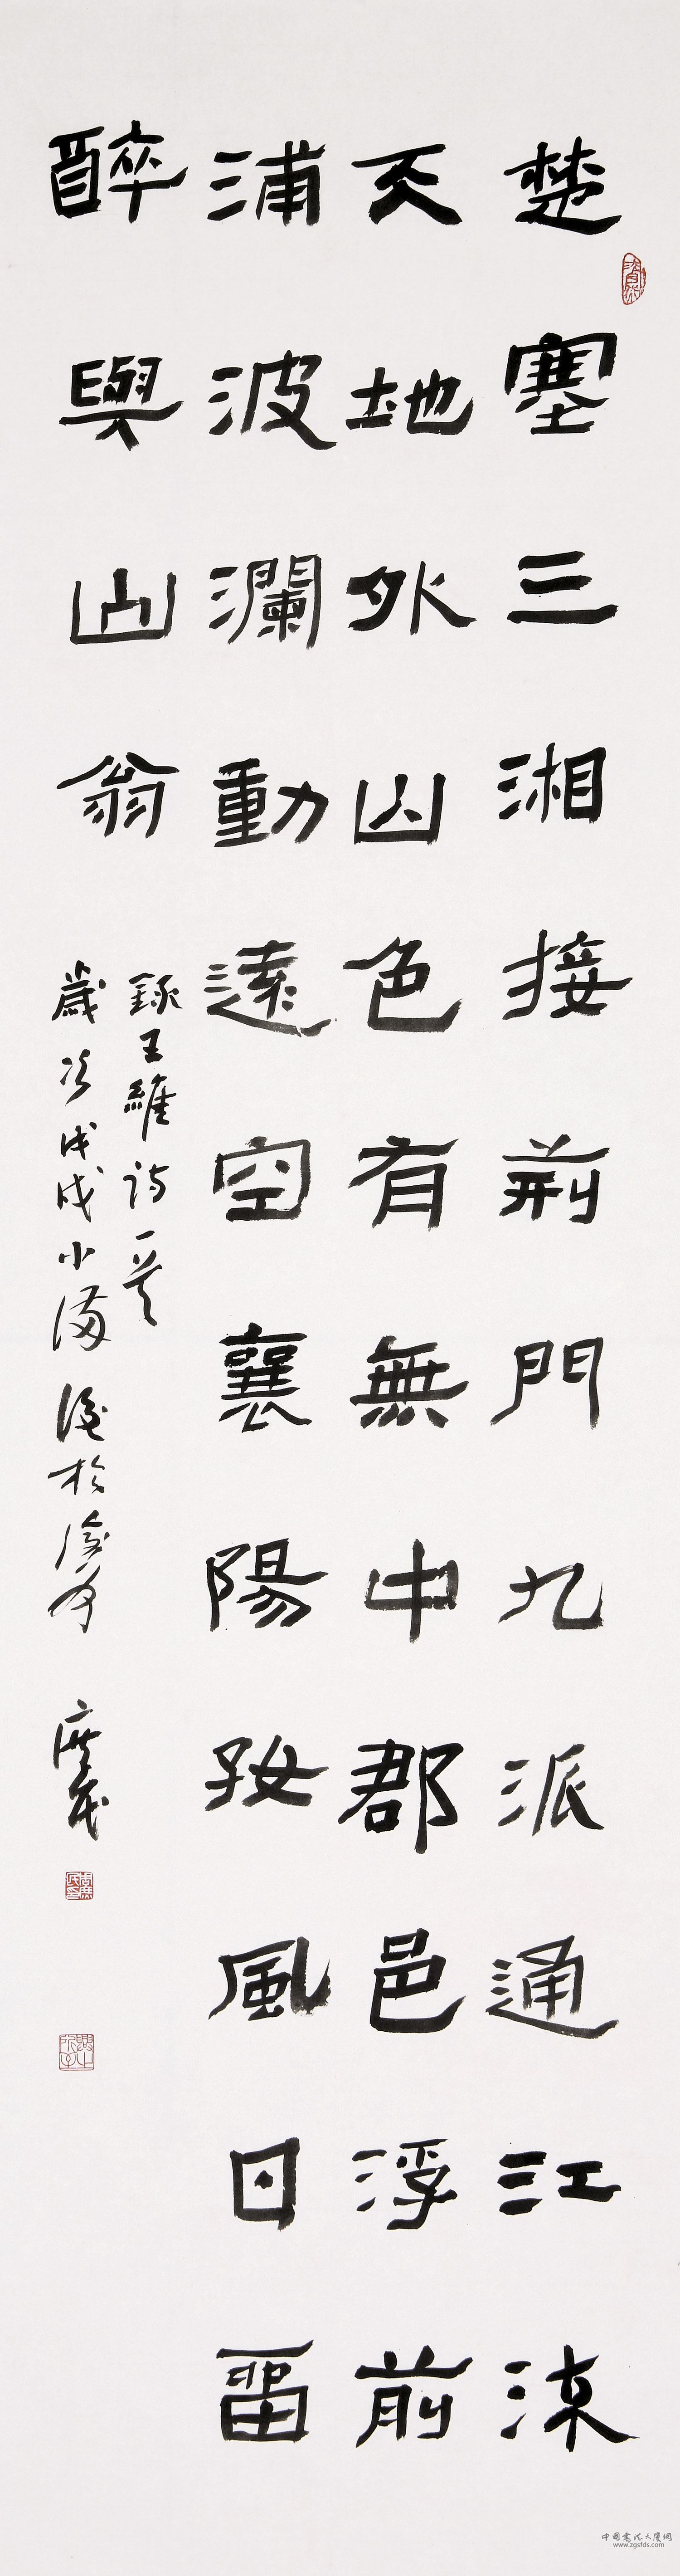 楚塞三湘接荊門九派通江流
天地外山色有無中郡邑浮前
浦波瀾動遠空襄陽好風日畱
醉與山翁
錄王維詩一首
歲次戊戌小滿後於 庶民
中国书法大厦网
www.zgsfds.com